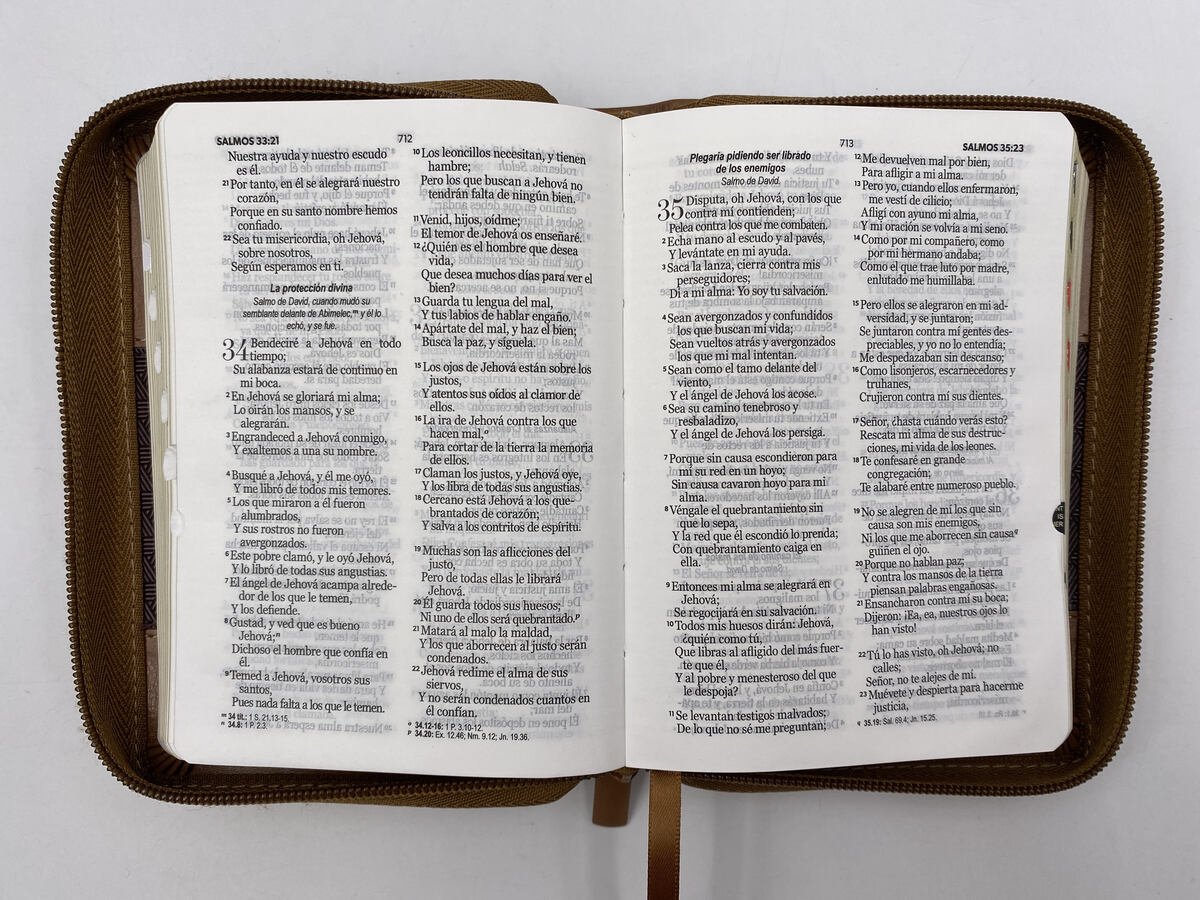 SALMOS 33:21
712
Nuestra ayuda y nuestro escudo
es él.
21 Por tanto, en él se alegrará nuestro
corazón,
Porque en su santo nombre hemos
confiado.
22 Sea tu misericordia, oh Jehová,
sobre nosotros,
Según esperamos en ti.
La protección divina
Salmo de David, cuando mudó su
semblante delante de Abimelec,m y él lo
echó, y se fue.
34 Bendeciré a Jehová en todo
tiempo;
Su alabanza estará de continuo en
mi boca.
2 En Jehová se gloriará mi alma;
Lo oirán los mansos, y se
alegrarán.
3 Engrandeced a Jehová conmigo,
Y exaltemos a una su nombre.
4 Busqué a Jehová, y él me oyó,
Y me libró de todos mis temores.
5 Los que miraron a él fueron
alumbrados,
Y sus rostros no fueron
avergonzados.
6 Este pobre clamó, y le oyó Jehová,
Y lo libró de todas sus angustias.
7 El ángel de Jehová acampa alrede-
dor de los que le temen,
Y los defiende.
8 Gustad, y ved que es bueno
Jehová;n
Dichoso el hombre que confía en
él.
9 Temed a Jehová, vosotros sus
santos,
Pues nada falta a los que le temen.
m 34 tít.: 1 S. 21.13-15.
n 34.8: 1 P. 2.3.
10 Los leoncillos necesitan, y tienen
hambre;
Pero los que buscan a Jehová no
tendrán falta de ningún bien.
11 Venid, hijos, oídme;
El temor de Jehová os enseñaré.
12 ¿Quién es el hombre que desea
vida,
Que desea muchos días para ver el
bien?
13 Guarda tu lengua del mal,
Y tus labios de hablar engaño.
14 Apártate del mal, y haz el bien;
Busca la paz, y síguela.
15 Los ojos de Jehová están sobre los
justos,
Y atentos sus oídos al clamor de
ellos.
16 La ira de Jehová contra los que
hacen mal,o
Para cortar de la tierra la memoria
de ellos.
17 Claman los justos, y Jehová oye,
Y los libra de todas sus angustias.
18 Cercano está Jehová a los que-
brantados de corazón;
Y salva a los contritos de espíritu.
19 Muchas son las aflicciones del
justo,
Pero de todas ellas le librará
Jehová.
20 Él guarda todos sus huesos;
Ni uno de ellos será quebrantado.p
21 Matará al malo la maldad,
Y los que aborrecen al justo serán
condenados.
22 Jehová redime el alma de sus
siervos,
Y no serán condenados cuantos en
él confían.
o 34.12-16: 1 P. 3.10-12.
p 34.20: Ex. 12.46; Nm. 9.12; Jn. 19.36.
713
SALMOS 35:23
Plegaria pidiendo ser librado
de los enemigos
Salmo de David.
35 Disputa, oh Jehová, con los que
contra mí contienden;
Pelea contra los que me combaten.
2 Echa mano al escudo y al pavés,
Y levántate en mi ayuda.
3 Saca la lanza, cierra contra mis
perseguidores;
Di a mi alma: Yo soy tu salvación.
4 Sean avergonzados y confundidos
los que buscan mi vida;
Sean vueltos atrás y avergonzados
los que mi mal intentan.
5 Sean como el tamo delante del
viento,
Y el ángel de Jehová los acose.
6 Sea su camino tenebroso y
resbaladizo,
Y el ángel de Jehová los persiga.
7 Porque sin causa escondieron para
mí su red en un hoyo;
Sin causa cavaron hoyo para mi
alma.
8 Véngale el quebrantamiento sin
que lo sepa,
Y la red que él escondió lo prenda;
Con quebrantamiento caiga en
ella.
9 Entonces mi alma se alegrará en
Jehová;
Se regocijará en su salvación.
10 Todos mis huesos dirán: Jehová,
¿quién como tú,
Que libras al afligido del más fuer-
te que él,
Y al pobre y menesteroso del que
le despoja?
11 Se levantan testigos malvados;
De lo que no sé me preguntan;
12 Me devuelven mal por bien,
Para afligir a mi alma.
13 Pero yo, cuando ellos enfermaron,
me vestí de cilicio;
Afligí con ayuno mi alma,
Y mi oración se volvía a mi seno.
14 Como por mi compañero, como
por mi hermano andaba;
Como el que trae luto por madre,
enlutado me humillaba.
15 Pero ellos se alegraron en mi ad-
versidad, y se juntaron;
Se juntaron contra mí gentes des-
preciables, y yo no lo entendía;
Me despedazaban sin descanso;
16 Como lisonjeros, escarnecedores y
truhanes,
Crujieron contra mí sus dientes.
17 Señor, ¿hasta cuándo verás esto?
Rescata mi alma de sus destruc-
ciones, mi vida de los leones.
18 Te confesaré en grande
congregación;
Te alabaré entre numeroso pueblo.
19 No se alegren de mí los que sin
causa son mis enemigos,
Ni los que me aborrecen sin causaq
guiñen el ojo.
20 Porque no hablan paz;
Y contra los mansos de la tierra
piensan palabras engañosas.
21 Ensancharon contra mí su boca;
Dijeron: ¡Ea, ea, nuestros ojos lo
han visto!
22 Tú lo has visto, oh Jehová; no
calles;
Señor, no te alejes de mí.
23 Muévete y despierta para hacerme
justicia,
q 35.19: Sal. 69.4; Jn. 15.25.